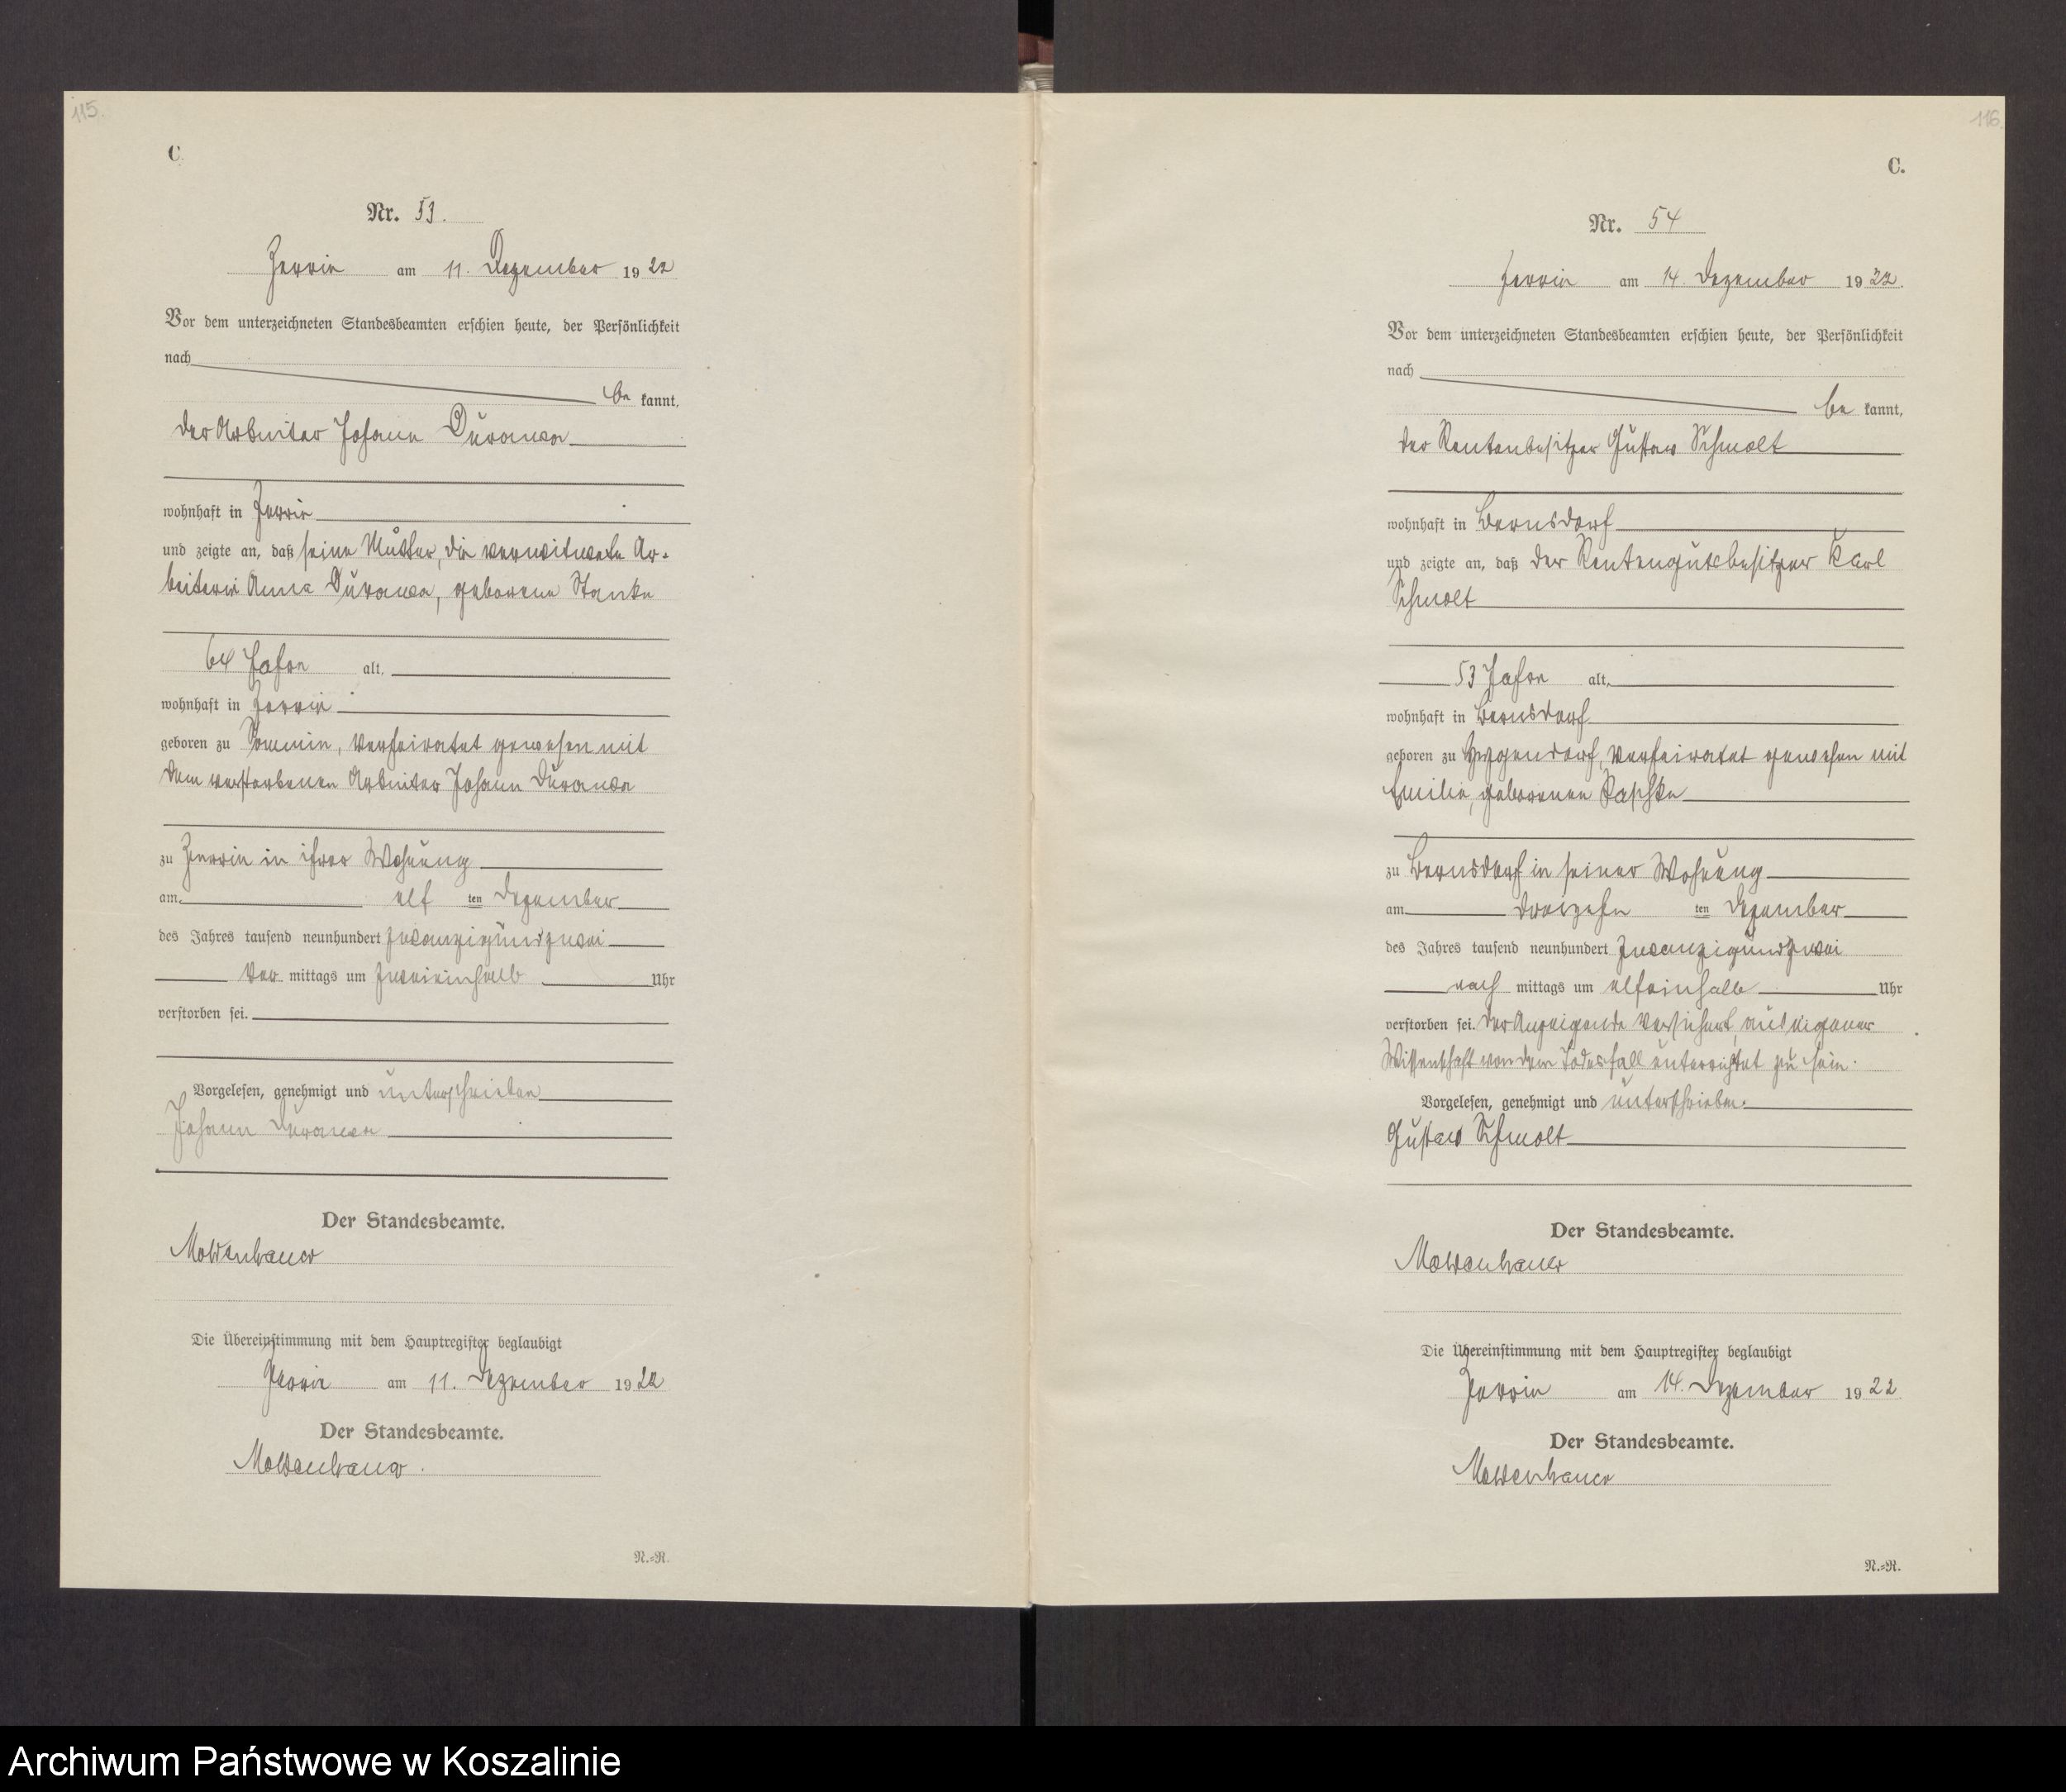 115.
C.
Nr. 53.
Zerrin am 11. Dezember 1922
Vor dem unterzeichneten Standesbeamten erschien heute, der Persönlichkeit
nach
be kannt,
der Arbeiter Johann
wohnhaft in Zerrin
und zeigte an, daß seine Mutter, die verwitwete Ar-
beiterin Anna geborene Stanke
64 Jahre alt,
wohnhaft in Zerrin
geboren zu Sommin, verheiratet gewesen mit
dem verstorbenen Arbeiter Johann
zu Zerrin in ihrer Wohnung
am elf ten Dezember
des Jahres tausend neunhundert zwanzigundzwei
Vor mittags um zweieinhalb Uhr
verstorben sei.
Vorgelesen, genehmigt und unterschrieben
Johann
Der Standesbeamte.
Moldenhauer
Die Übereinstimmung mit dem Hauptregister beglaubigt
Zerrin am 11. Dezember 1922
Der Standesbeamte.
Moldenhauer.
N.=R.
116.
C.
Nr. 54
Zerrin am 14. Dezember 1922.
Vor dem unterzeichneten Standesbeamten erschien heute, der Persönlichkeit
nach
be kannt,
der Rentenbesitzer Gustav Schmolt
wohnhaft in Bernsdorf
und zeigte an, daß der Rentengutsbesitzer Karl
Schmolt
53 Jahre alt,
wohnhaft in Bernsdorf
geboren zu verheiratet gewesen mit
Emilie, geborenen Raschke
zu Bernsdorf in seiner Wohnung
am dreizehn ten Dezember
des Jahres tausend neunhundert zwanzigundzwei
nach mittags um elfeinhalb Uhr
verstorben sei. Der Anzeigende versichert, aus eigener
Wissenschaft von dem Todesfall unterrichtet zu sein.
Vorgelesen, genehmigt und unterschrieben.
Gustav Schmolt
Der Standesbeamte.
Moldenhauer
Die Übereinstimmung mit dem Hauptregister beglaubigt
Zerrin am 14. Dezember 1922
Der Standesbeamte.
Moldenhauer
N.=R.
Archiwum Państwowe w Koszalinie